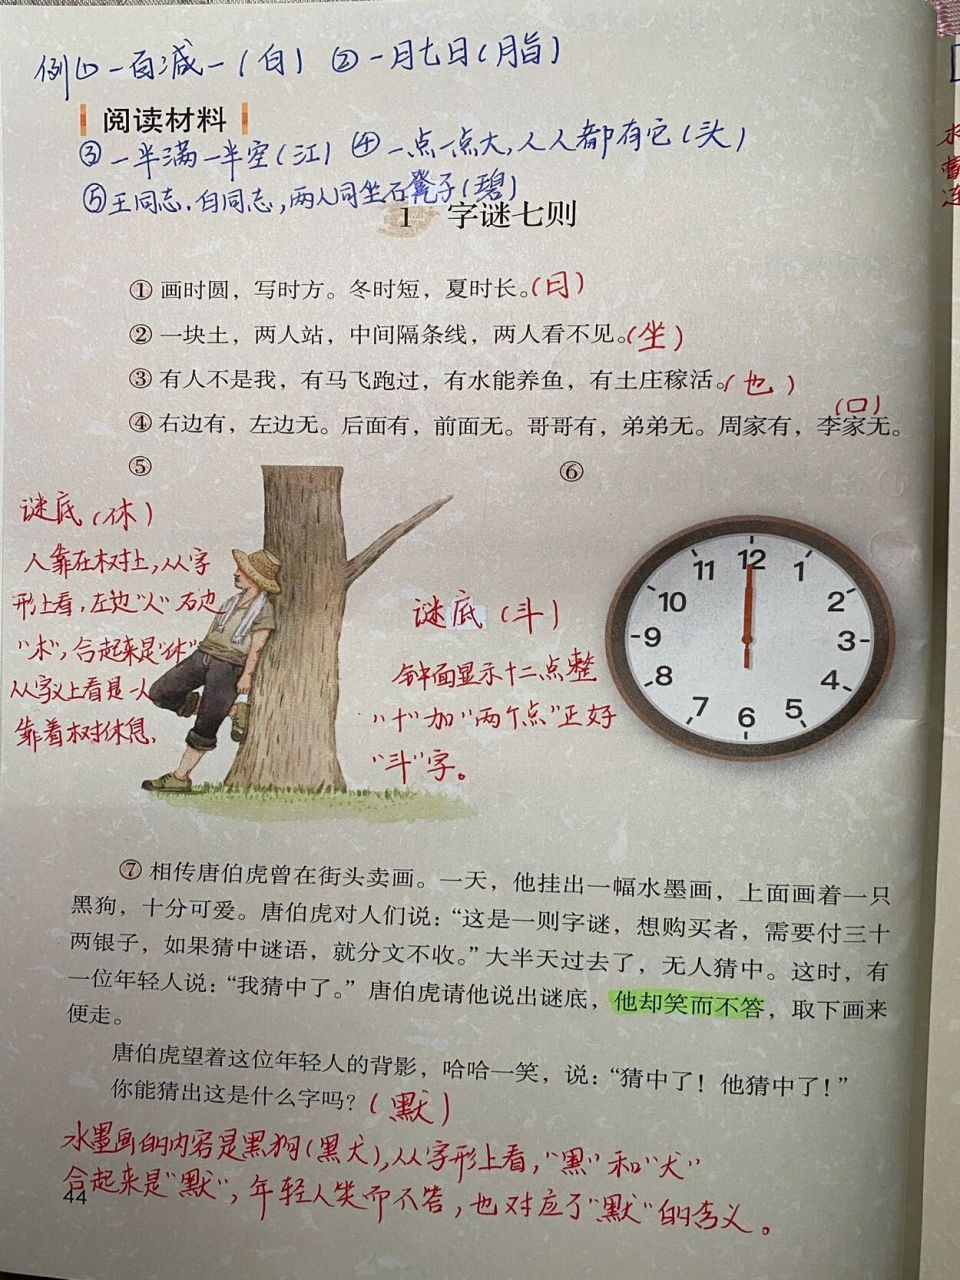 例① 一百减一(白) ② 一月七日(脂)
阅读材料
③ 一半满一半空(江) ④ 一点一点大,人人都有它(头)
⑤ 王同志.白同志,两人同坐石凳子(碧)
1 字谜七则
① 画时圆，写时方。冬时短，夏时长。(日)
② 一块土，两人站，中间隔条线，两人看不见。(坐)
③ 有人不是我，有马飞跑过，有水能养鱼，有土庄稼活。(也)
(口)
④ 右边有，左边无。后面有，前面无。哥哥有，弟弟无。周家有，李家无。
⑤
谜底(休)
人靠在树上,从字
形上看,左边"人"右边
"木",合起来是"休"
从字义上看是一人
靠着树休息.
⑥
谜底(斗)
钟面显示十二点整
"十"加"两个点"正好
"斗"字。
12
11 1
10 2
9 3
8 4
7 5
6
⑦ 相传唐伯虎曾在街头卖画。一天，他挂出一幅水墨画，上面画着一只
黑狗，十分可爱。唐伯虎对人们说：“这是一则字谜，想购买者，需要付三十
两银子，如果猜中谜语，就分文不收。”大半天过去了，无人猜中。这时，有
一位年轻人说：“我猜中了。”唐伯虎请他说出谜底，他却笑而不答，取下画来
便走。
唐伯虎望着这位年轻人的背影，哈哈一笑，说：“猜中了！他猜中了！”
你能猜出这是什么字吗？(默)
水墨画的内容是黑狗(黑犬),从字形上看,"黑"和"犬"
合起来是"默",年轻人笑而不答,也对应了"默"的含义。
44